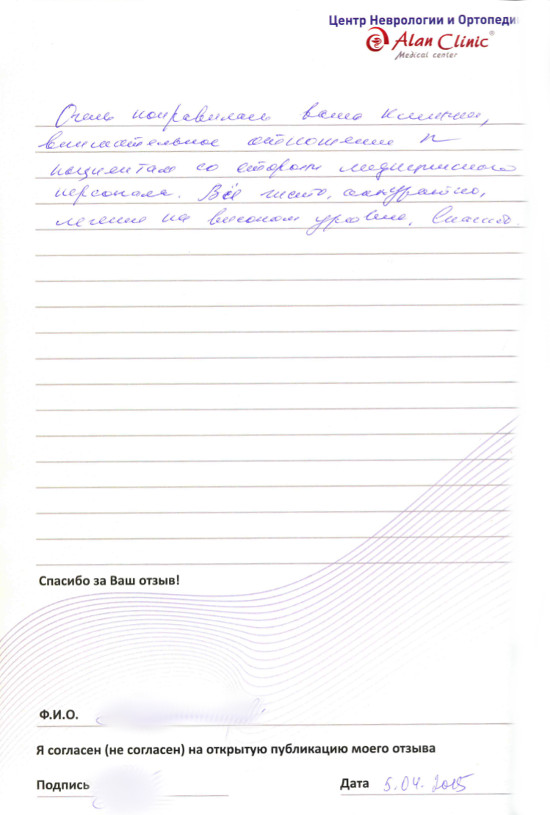 Центр Неврологии и Ортопеди
Alan Clinic®
Medical center
Очень понравилась ваша клиника,
внимательное отношение к
пациентам со стороны медицинского
персонала. Всё чисто, аккуратно,
лечение на высоком уровне, спасибо.
Спасибо за Ваш отзыв!
Ф.И.О.
Я согласен (не согласен) на открытую публикацию моего отзыва
Подпись
Дата 5.04.2015